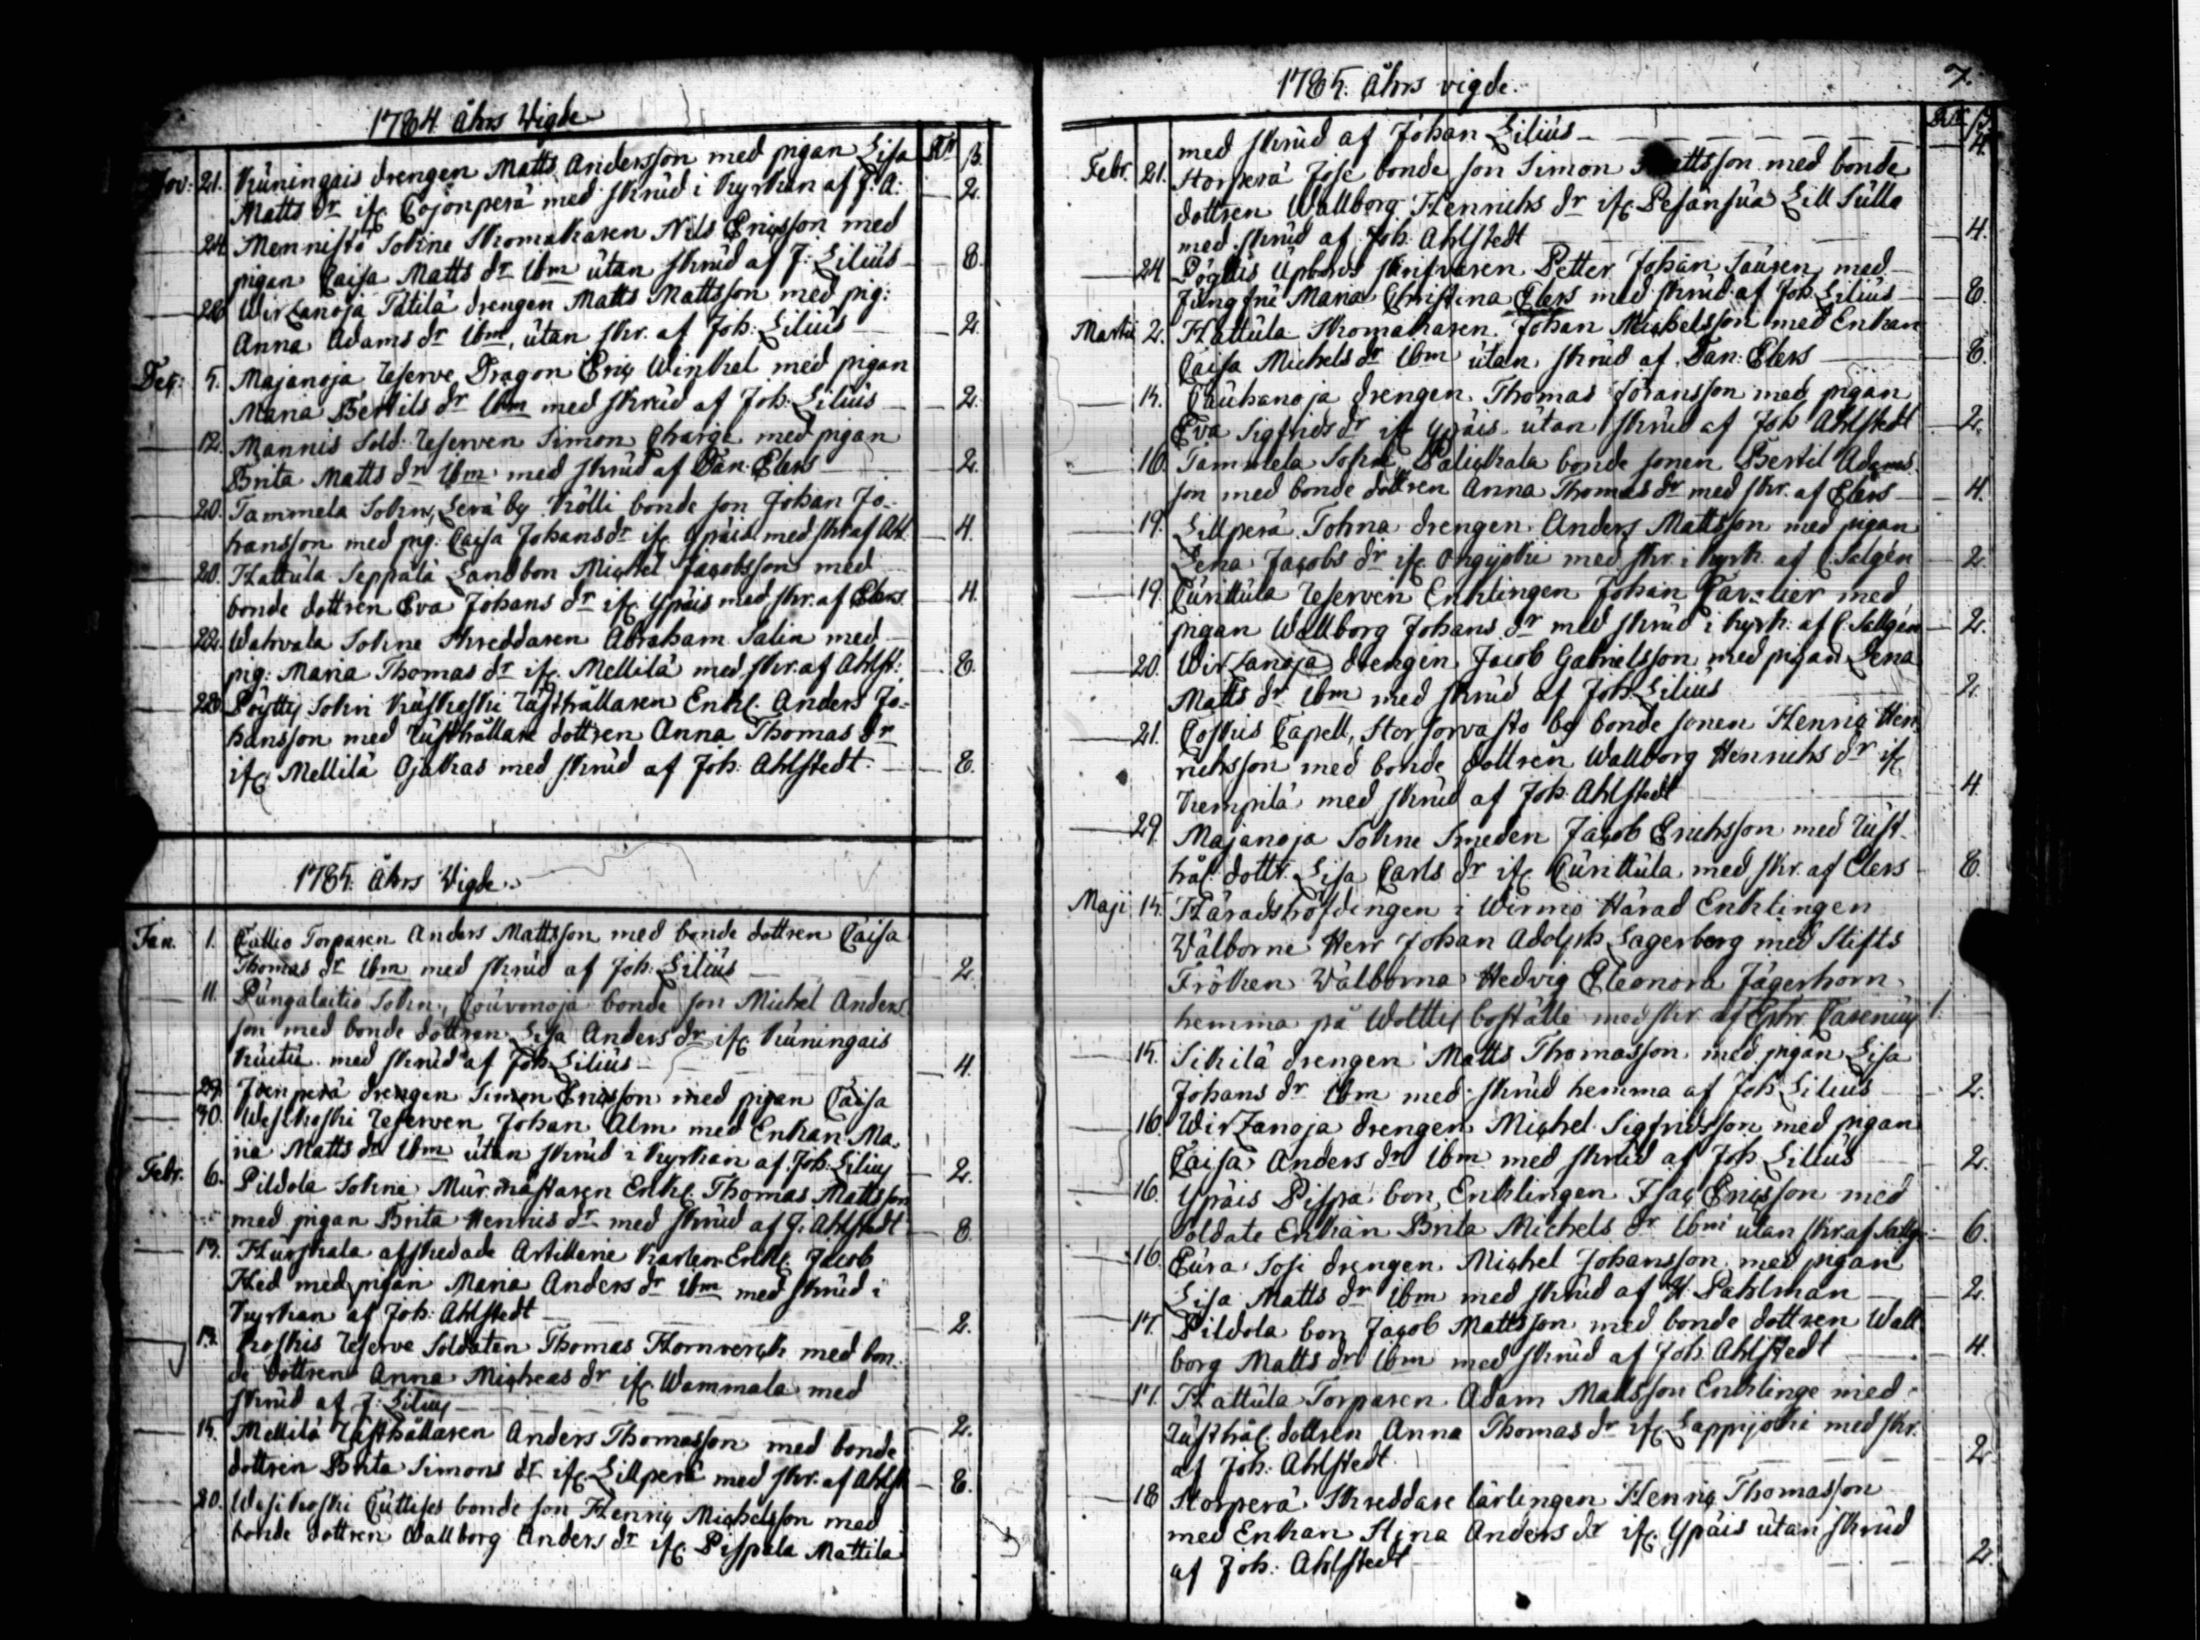 1784 åhrs Wigde
Rdr ß
Nov: 21. Kuningais drengen Matts Andersson med pigan Lisa
Matts dr ifr. Cojonperä med skrud i kyrkan af J: A: 2.
24. Mennistö Sokne Skomakaren Nils Ericsson med
pigan Caisa Matts dr Ibm utan skrud af J: Lilius 8.
28 Wirtzanoja Tatila drengen Matts Mattsson med pig:
Anna Adams dr Ibm, utan skr. af Joh: Lilius 2.
Dec: 5. Majanoja Reserve Dragon Eric Winkel med pigan
Maria Bertils dr Ibm med skrud af Joh: Lilius 2.
12. Mannis Sold: Reserven Simon Charge med pigan
Brita Matts dr Ibm med skrud af Dan. Elers 2.
20. Tammela Sokn, Levä by Kölli bonde son Johan Jo-
hansson med pig: Caisa Johans dr ifr. Ypäis med skr af Ahl. 4.
20. Hattula Seppälä Landbon Michel Jacobsson med
bonde dottren Eva Johans dr ifr. Ypäis med skr. af Elers. 4.
22. Wahvala Sokne Skreddaren Abraham Salin med
pig: Maria Thomas dr ifr. Mellilä med skr. af Ahlst: 8
28 Pöytty Sokn Kuskoski Rusthållaren Enkl. Anders Jo-
hansson med Rusthållare dottren Anna Thomas dr
ifr. Mellilä Ojakas med skrud af Joh: Ahlstedt. 8.
1785. åhrs Wigde.
Jan. 1. Tallio Torparen Anders Mattsson med bonde dottren Caisa
Thomas dr Ibm med skrud af Joh: Lilius 2.
11. Pungalaitio Sokn, Couvonoja bonde son Michel Anders-
son med bonde dottren Lisa Anders dr ifr. Kuningais
med skrud af Joh Lilius 4.
29. Joenperä drengen Simon Ericsson med pigan Caisa
30. Westkoski Reserven Johan Alm med Enkan Ma-
ria Matts dr Ibm utan skrud i kyrkan af Joh: Lilius 2.
Febr. 6. Pildola Sokne Mur mästaren Enkl. Thomas Mattsson
med pigan Brita Henrics dr med skrud af J: Ahlstedt 8.
13. Hurskala afskedade Artillerie Karlen Enkl. Jacob
Hed med pigan Maria Anders dr Ibm med skrud i
kyrkan af Joh: Ahlstedt 2.
13. Koskis Reserve Soldaten Thomas Hornverck med bon-
de dottren Anna Micheas dr ifr. Wammala med
skrud af J: Lilius 2.
15. Mellilä Rusthållaren Anders Thomasson med bonde
dottren Brita Simons dr ifr. Lillperä med skr. af Ahlst. 8.
20. Wesikoski Tuttises bonde son Henric Michelsson med
bonde dottren Wallborg Anders dr ifr. Pispala Mattila
1785. åhrs vigde. 7.
Rdr ß
med skrud af Johan Lilius 4.
Febr. 21. Storperä Jose bonde son Simon Mattsson med bonde
dottren Wallborg Henrichs dr ifr Pesänsua Lill Sulla
med skrud af Joh: Ahlstedt 4.
24. Pöyttis Upbörds skrifvaren Petter Johan Sauren, med
Jungfru Maria Christina Elers med skrud af Joh: Lilius 8.
Martii 2. Hattula Skomakaren Johan Michelsson med Enkan
Caisa Michels dr Ibm utan skrud af Dan: Elers 8.
15. Cauhanoja drengen Thomas Joransson med pigan
Eva Sigfrids dr ifr Ypäis utan skrud af Joh Ahlstedt 2.
16. Tammela Sokn Palickala bonde sonen Bertil Adams-
son med bonde dottren Anna Thomas dr med skr. af Elers 4.
19. Lillperä Tohna drengen Anders Mattsson med pigan
Lena Jacobs dr ifr. Ongijoki med skr. i kyrk. af C. Salgén 2.
19. Curittula Reserven Enklingen Johan Cavalier med
pigan Wallborg Johans dr med skrud i kyrk: af C. Sallgén 2.
20. Wirtzanoja drengen Jacob Gabrielsson med pigan Lena
Matts dr Ibm med skrud af Joh: Lilius 2.
21. Coskis Capell, Storsorvasto by bonde sonen Henric Hen-
richsson med bonde dottren Wallborg Henrichs dr ifr
Kempilä med skrud af Joh: Ahlstedt 4
29. Majanoja Sokne Smeden Jacob Erichsson med Rust-
hål. dottr. Lisa Carls dr ifr. Curittula med skr. af Elers 8.
Maji 15. Häradshöfdingen i Wirmo Härad Enklingen
Wälborne Herr Johan Adolph Lagerborg med Stifts
Fröken Wälborna Hedvig Eleonora Jägerhorn
hemma på Wolttis boställe med skr. af Ephr. Carenius 1.
15. Sikilä drengen Matts Thomasson med pigan Lisa
Johans dr Ibm med skrud hemma af Joh Lilius 2.
16. Wirtzanoja drengen Michel Sigfridsson med pigan
Caisa Anders dr Ibm med skrud af Joh Lilius 2.
16. Ypäis Pispa bon, Enklingen Isac Ericsson med
Soldate Enkan Brita Michels dr Ibm utan skr. af Sallg: 6.
16. Eura Sosi drengen Michel Johansson med pigan
Lisa Matts dr Ibm med skrud af H. Pahlman 2.
17. Pildola bon Jacob Mattsson med bonde dottren Wall-
borg Matts dr Ibm med skrud af Joh Ahlstedt 4.
17. Hattula Torparen Adam Mattsson Enklinge med
Rusthål. dottren Anna Thomas dr ifr Lappijoki med skr.
af Joh: Ahlstedt. 2
18 Storperä Skreddare lärlingen Henric Thomasson
med Enkan Stina Anders dr ifr. Ypäis utan skrud
af Joh: Ahlstedt 2.